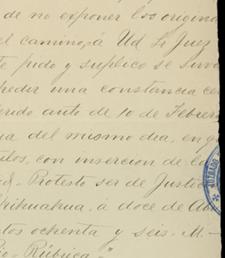 de no exponer los origina
el camino, á Ud Sr Juez
te pido y suplico se sirva
pedir una constancia ce
rido auto de 10 de Febrero
ia del mismo dia, en q
tulos, con insercion de lo
Protesto ser de Justic
hihuahua, á doce de Ab
tos ochenta y seis. M.—
Rio.- Rúbrica.-
JUZGADO